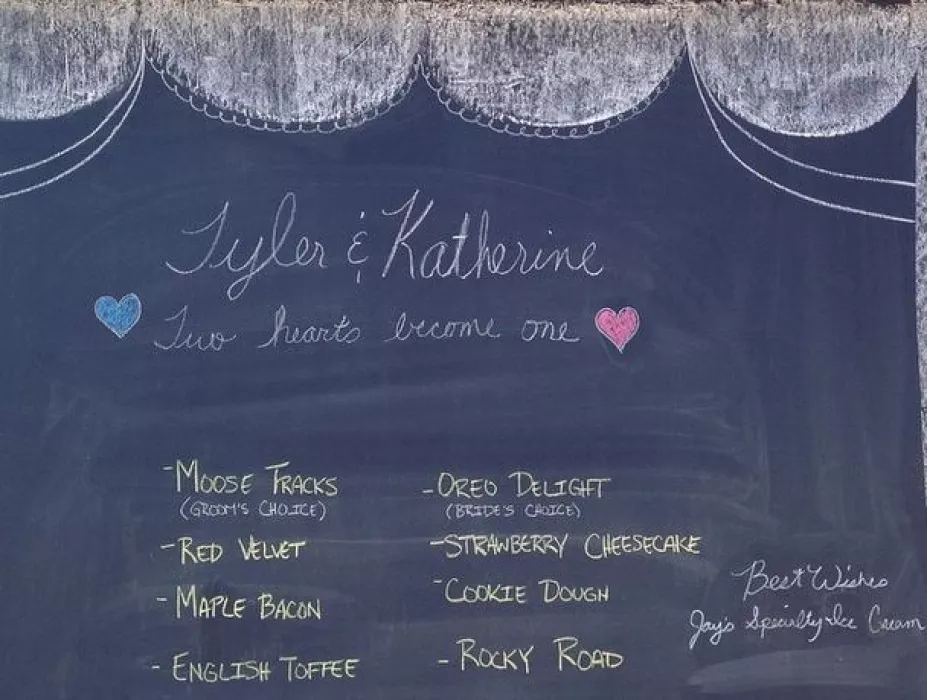 Tyler & Katherine
Two hearts become one
- MOOSE TRACKS
(GROOM'S CHOICE)
- RED VELVET
- MAPLE BACON
- ENGLISH TOFFEE
- OREO DELIGHT
(BRIDE'S CHOICE)
- STRAWBERRY CHEESECAKE
- COOKIE DOUGH
- ROCKY ROAD
Best Wishes
Jay's Specialty Ice Cream